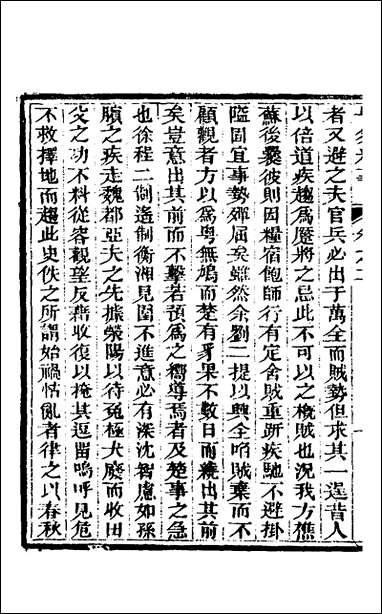 者又避之夫官兵必出于萬全而賊勢但求其一逞昔人
以倍道疾趨爲蹷將之忌此不可以之槪賊也況我方樵
蘇後爨彼則因糧宿飽師行有定舍賊重趼疾馳不避掛
隘固宜事勢殫屈矣雖然余劉二提以興全啗賊棄而不
顧觀者方以爲粤無鳩而楚有豸果不數日而繞出其前
矣豈意出其前而不擊若預爲之嚮導焉者及楚事之急
也徐程二制遙制衡湘見圍不進意必有深沈智慮如孫
臏之疾走魏都亞夫之先據滎陽以待兔極犬廢而收田
父之功不料從容觀望反藉收復以掩其逗畱嗚呼見危
不救擇地而趨此史佚之所謂始禍怙亂者律之以春秋